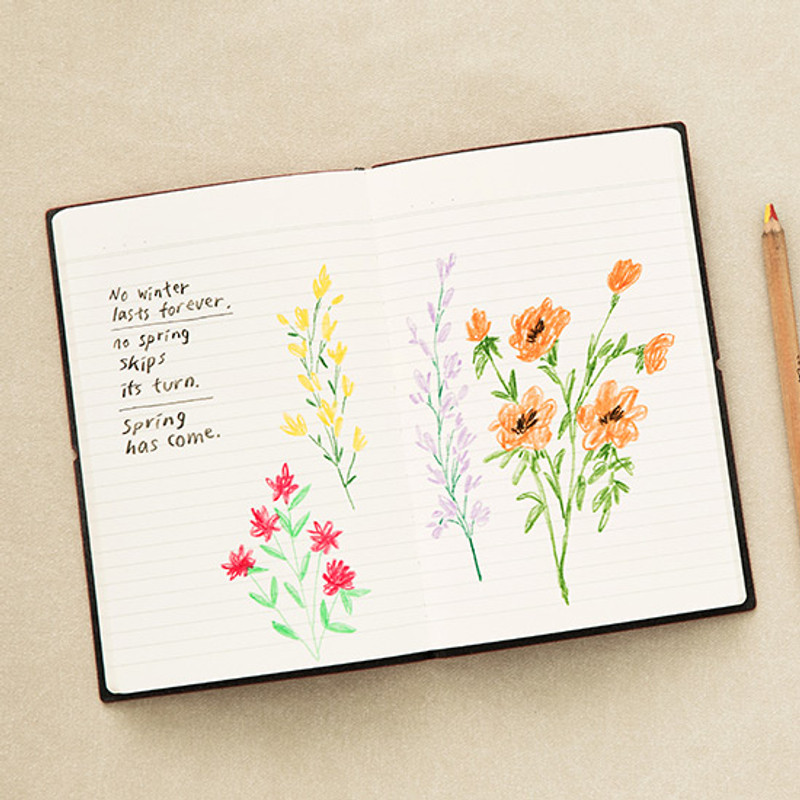 No winter
lasts forever.
no spring
skips
its turn.
spring
has come.